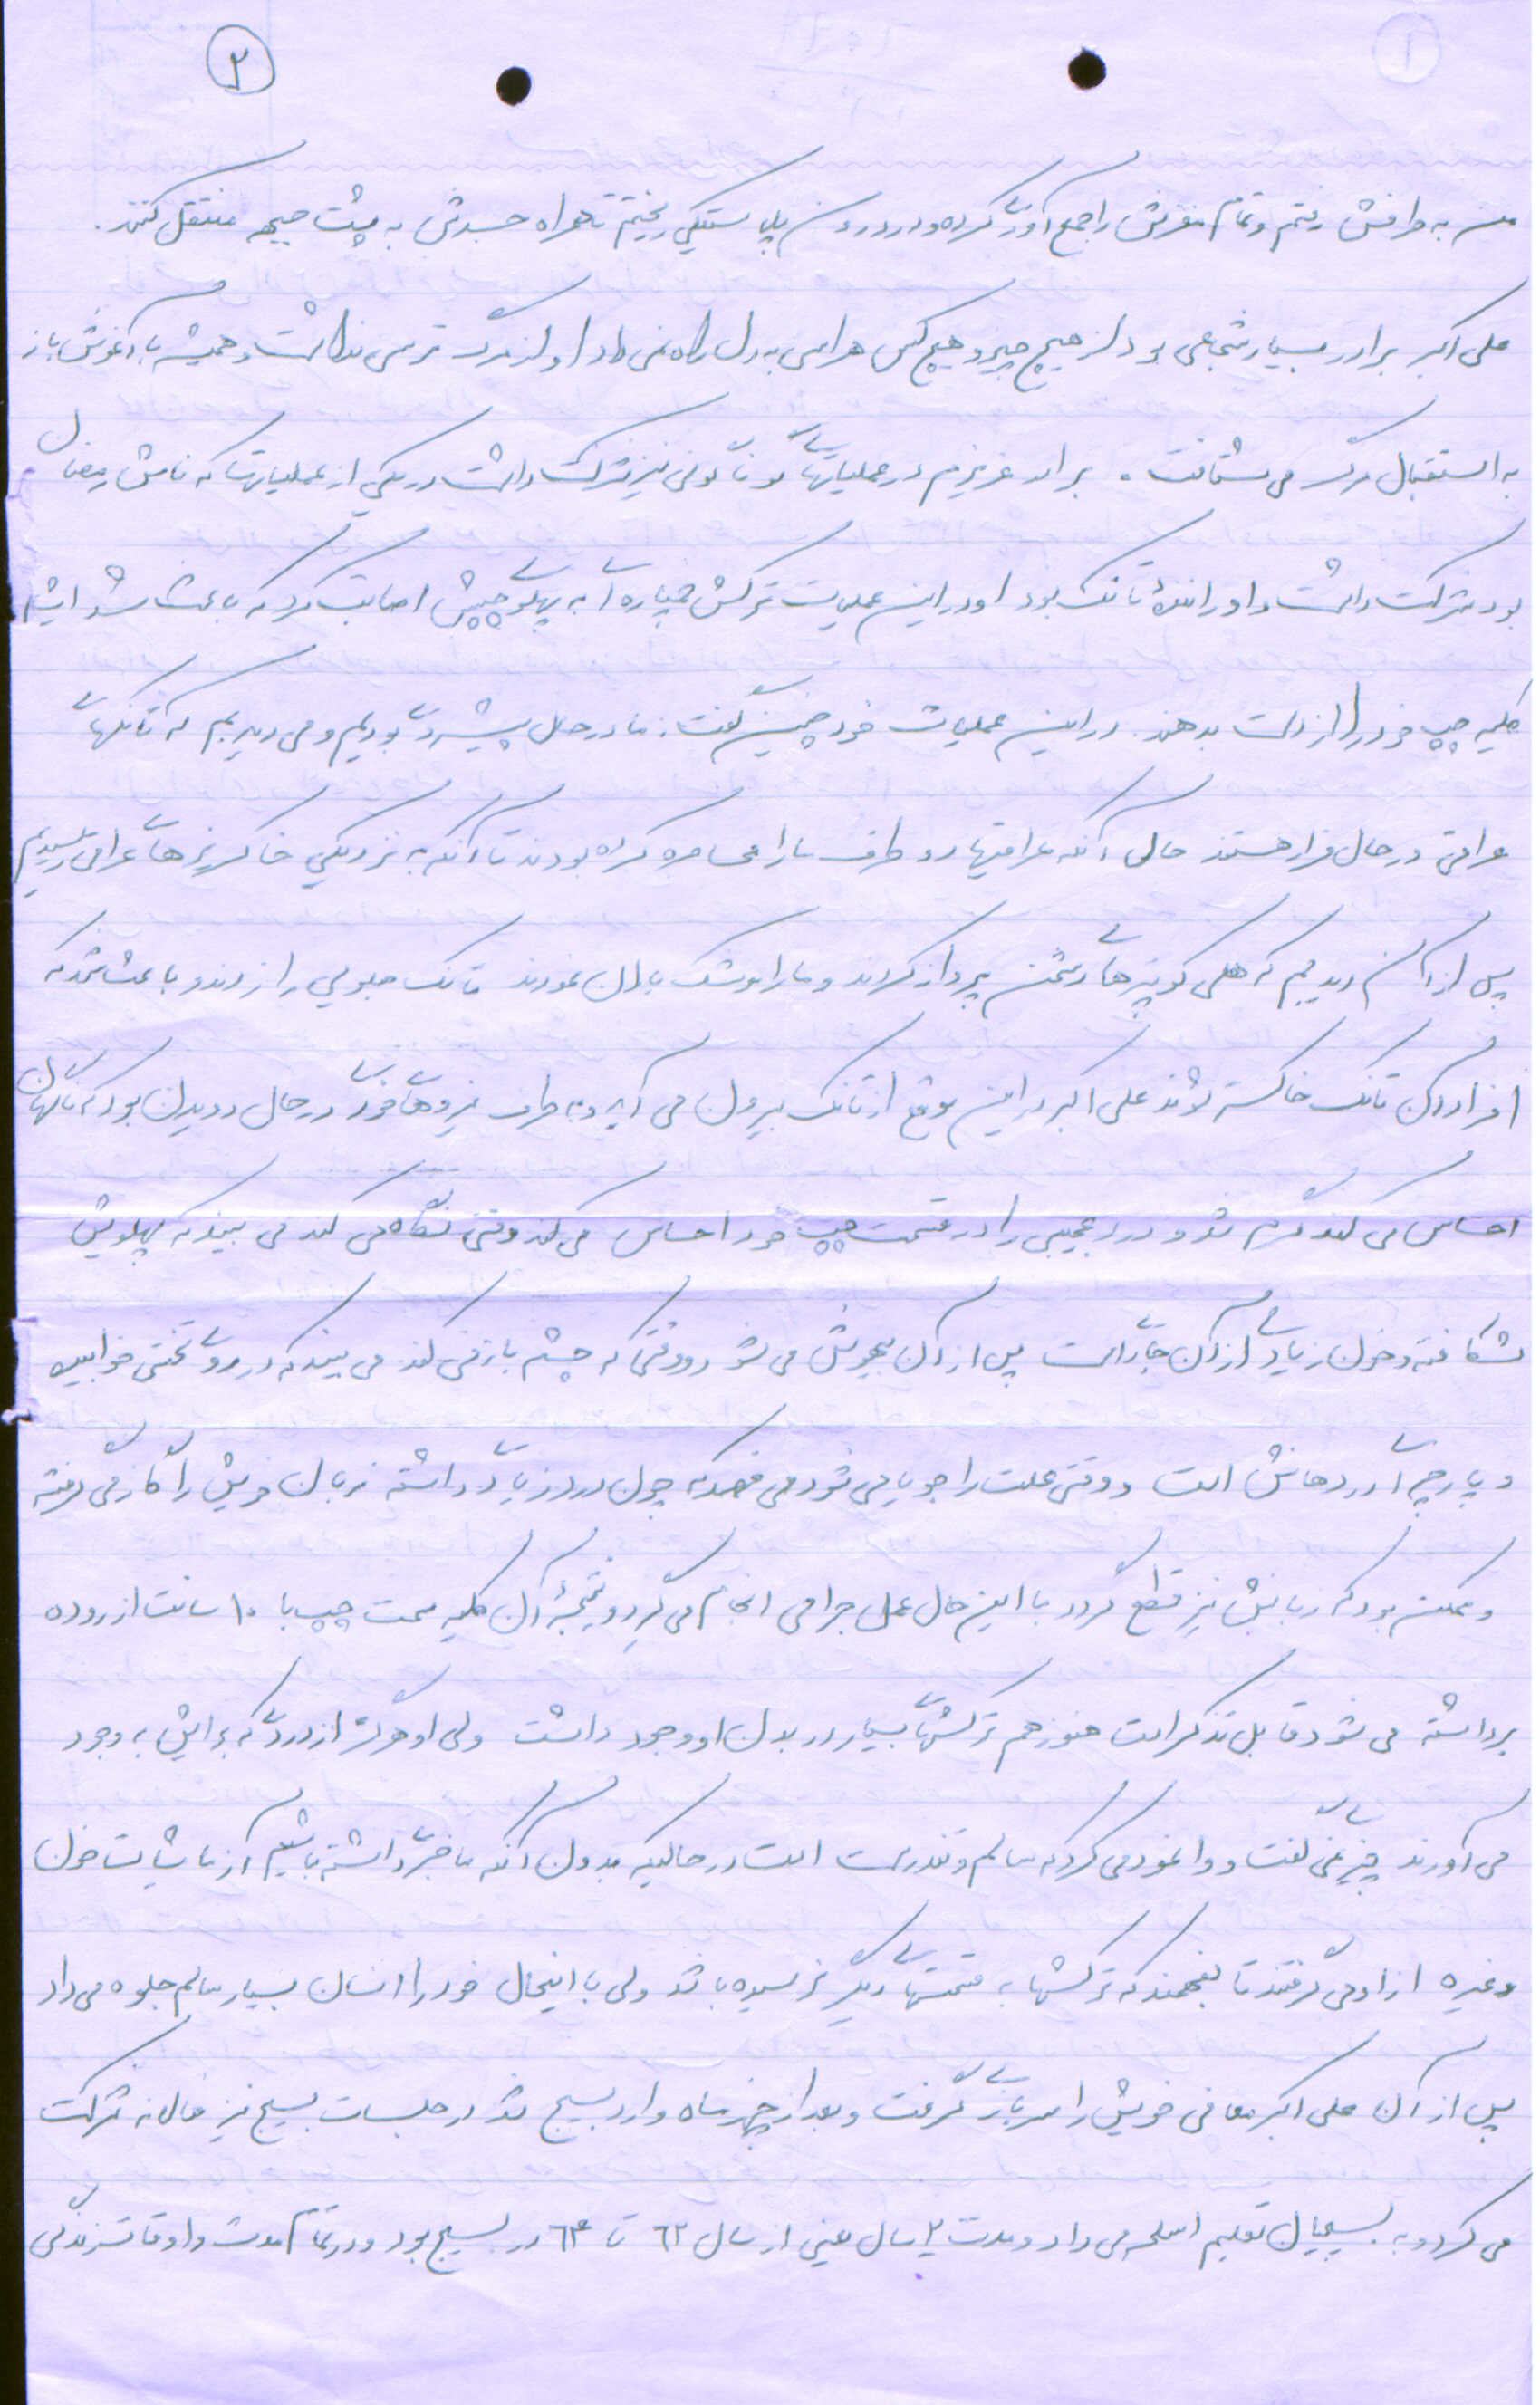 ۲
من به طرفش رفتم و تمام مغزش را جمع آوری کرده و در درون پلاستیکی ریختم تا همراه جسدش به پشت جبهه منتقل کنند.
علی اکبر برادر بسیار شجاعی بود از هیچ چیز و هیچ کس هراسی به دل راه نمی داد او از مرگ ترسی نداشت و همیشه با آغوش باز
به استقبال مرگ می شتافت. برادر عزیزم در عملیاتهای گوناگونی نیز شرکت داشت در یکی از عملیاتها که نامش رمضان
بود شرکت داشت و او رانندهٔ تانک بود او در این عملیات ترکش خمپاره ای به پهلوی چپش اصابت کرد که باعث شد ایشان
کلیه چپ خود را از دست بدهند. در این عملیات خود چنین گفت: ما در حال پیشروی بودیم و می دیدیم که تانکهای
عراقی در حال فرار هستند حالی آنکه عراقیها دو طرف ما را محاصره کرده بودند تا آنکه به نزدیکی خاکریزهای عراقی رسیدیم
پس از آن دیدیم که هلی کوپترهای دشمن پرواز کردند و ما را موشک باران نمودند تانک جلویی را زدند و باعث شد که
افراد آن تانک خاکستر شوند علی اکبر در این موقع از تانک بیرون می آید و به طرف نیروهای خودی در حال دویدن بود که ناگهان
احساس می کند گرم شد و درد عجیبی را در قسمت چپ خود احساس می کند وقتی نگاه می کند می بیند که پهلویش
شکافته و خون زیادی از آن جاری است پس از آن بیهوش می شود و وقتی که چشم باز می کند می بیند که در روی تختی خوابیده
و پارچه ای در دهانش است و وقتی علت را جویا می شود می فهمد که چون درد زیادی داشته زبان خویش را گاز می گرفته
و ممکن بود که زبانش نیز قطع گردد با این حال عمل جراحی انجام می گیرد و نتیجهٔ آن کلیه سمت چپ با ۱۰ سانت از روده
برداشته می شود قابل تذکر است هنوز هم ترکشهای بسیار در بدن او وجود داشت ولی او هرگز از دردی که برایش به وجود
می آورند چیزی نمی گفت و وانمود می کرد که سالم و تندرست است در حالیکه بدون آنکه ما خبری داشته باشیم آزمایشات خون
و غیره از او می گرفتند تا بفهمند که ترکشها به قسمتهای دیگر نرسیده باشد ولی با اینحال خود را انسان بسیار سالم جلوه می داد
پس از آن علی اکبر معافی خویش را از سربازی گرفت و بعد از چند ماه وارد بسیج شد در جلسات بسیج نیز فعالانه شرکت
می کرد و به بسیجیان تعلیم اسلحه می داد و مدت ۲ سال یعنی از سال ۶۲ تا ۶۴ در بسیج بود و در تمام مدت و اوقات زندگی